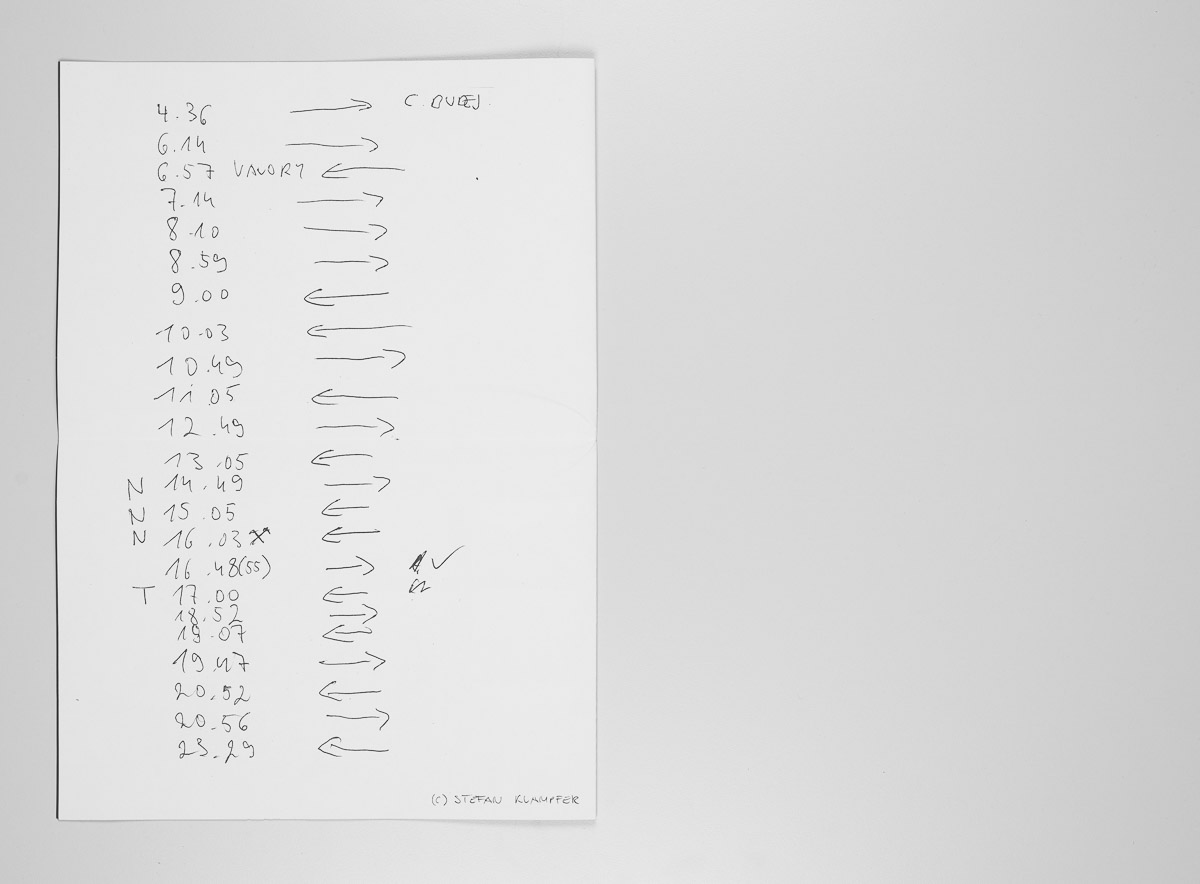 4.36 → C. BUDEJ.
6.14 →
6.57 VAVORY ←
7.14 →
8.10 →
8.59 →
9.00 ←
10.03 ←
10.49 →
11.05 ←
12.49 →
13.05 ←
N 14.49 →
N 15.05 ←
N 16.03 X ←
16.48(55) → ✓
T 17.00 ←
18.52 →
19.07 ←
19.47 →
20.52 ←
20.56 →
23.29 ←
(C) STEFAN KLAMPFER